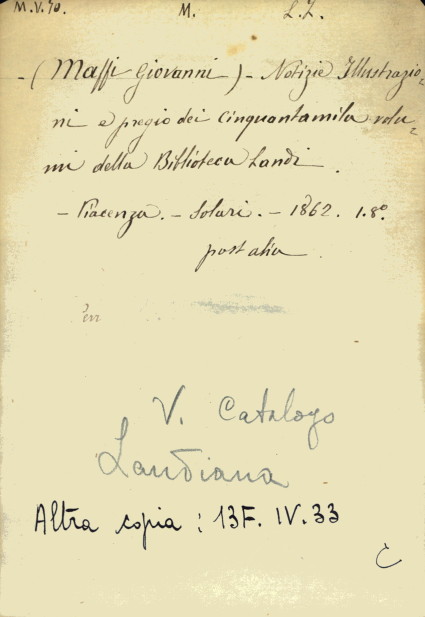 M.V.70. M. L.L.
- (Maffi Giovanni) - Notizie Illustrazio=
ni e pregio dei Cinquantamila volu=
mi della Biblioteca Landi.
- Piacenza. - Solari. - 1862. 1.8º.
post alia
V. Catalogo
Landiana
Altra copia : 13F. IV. 33
C